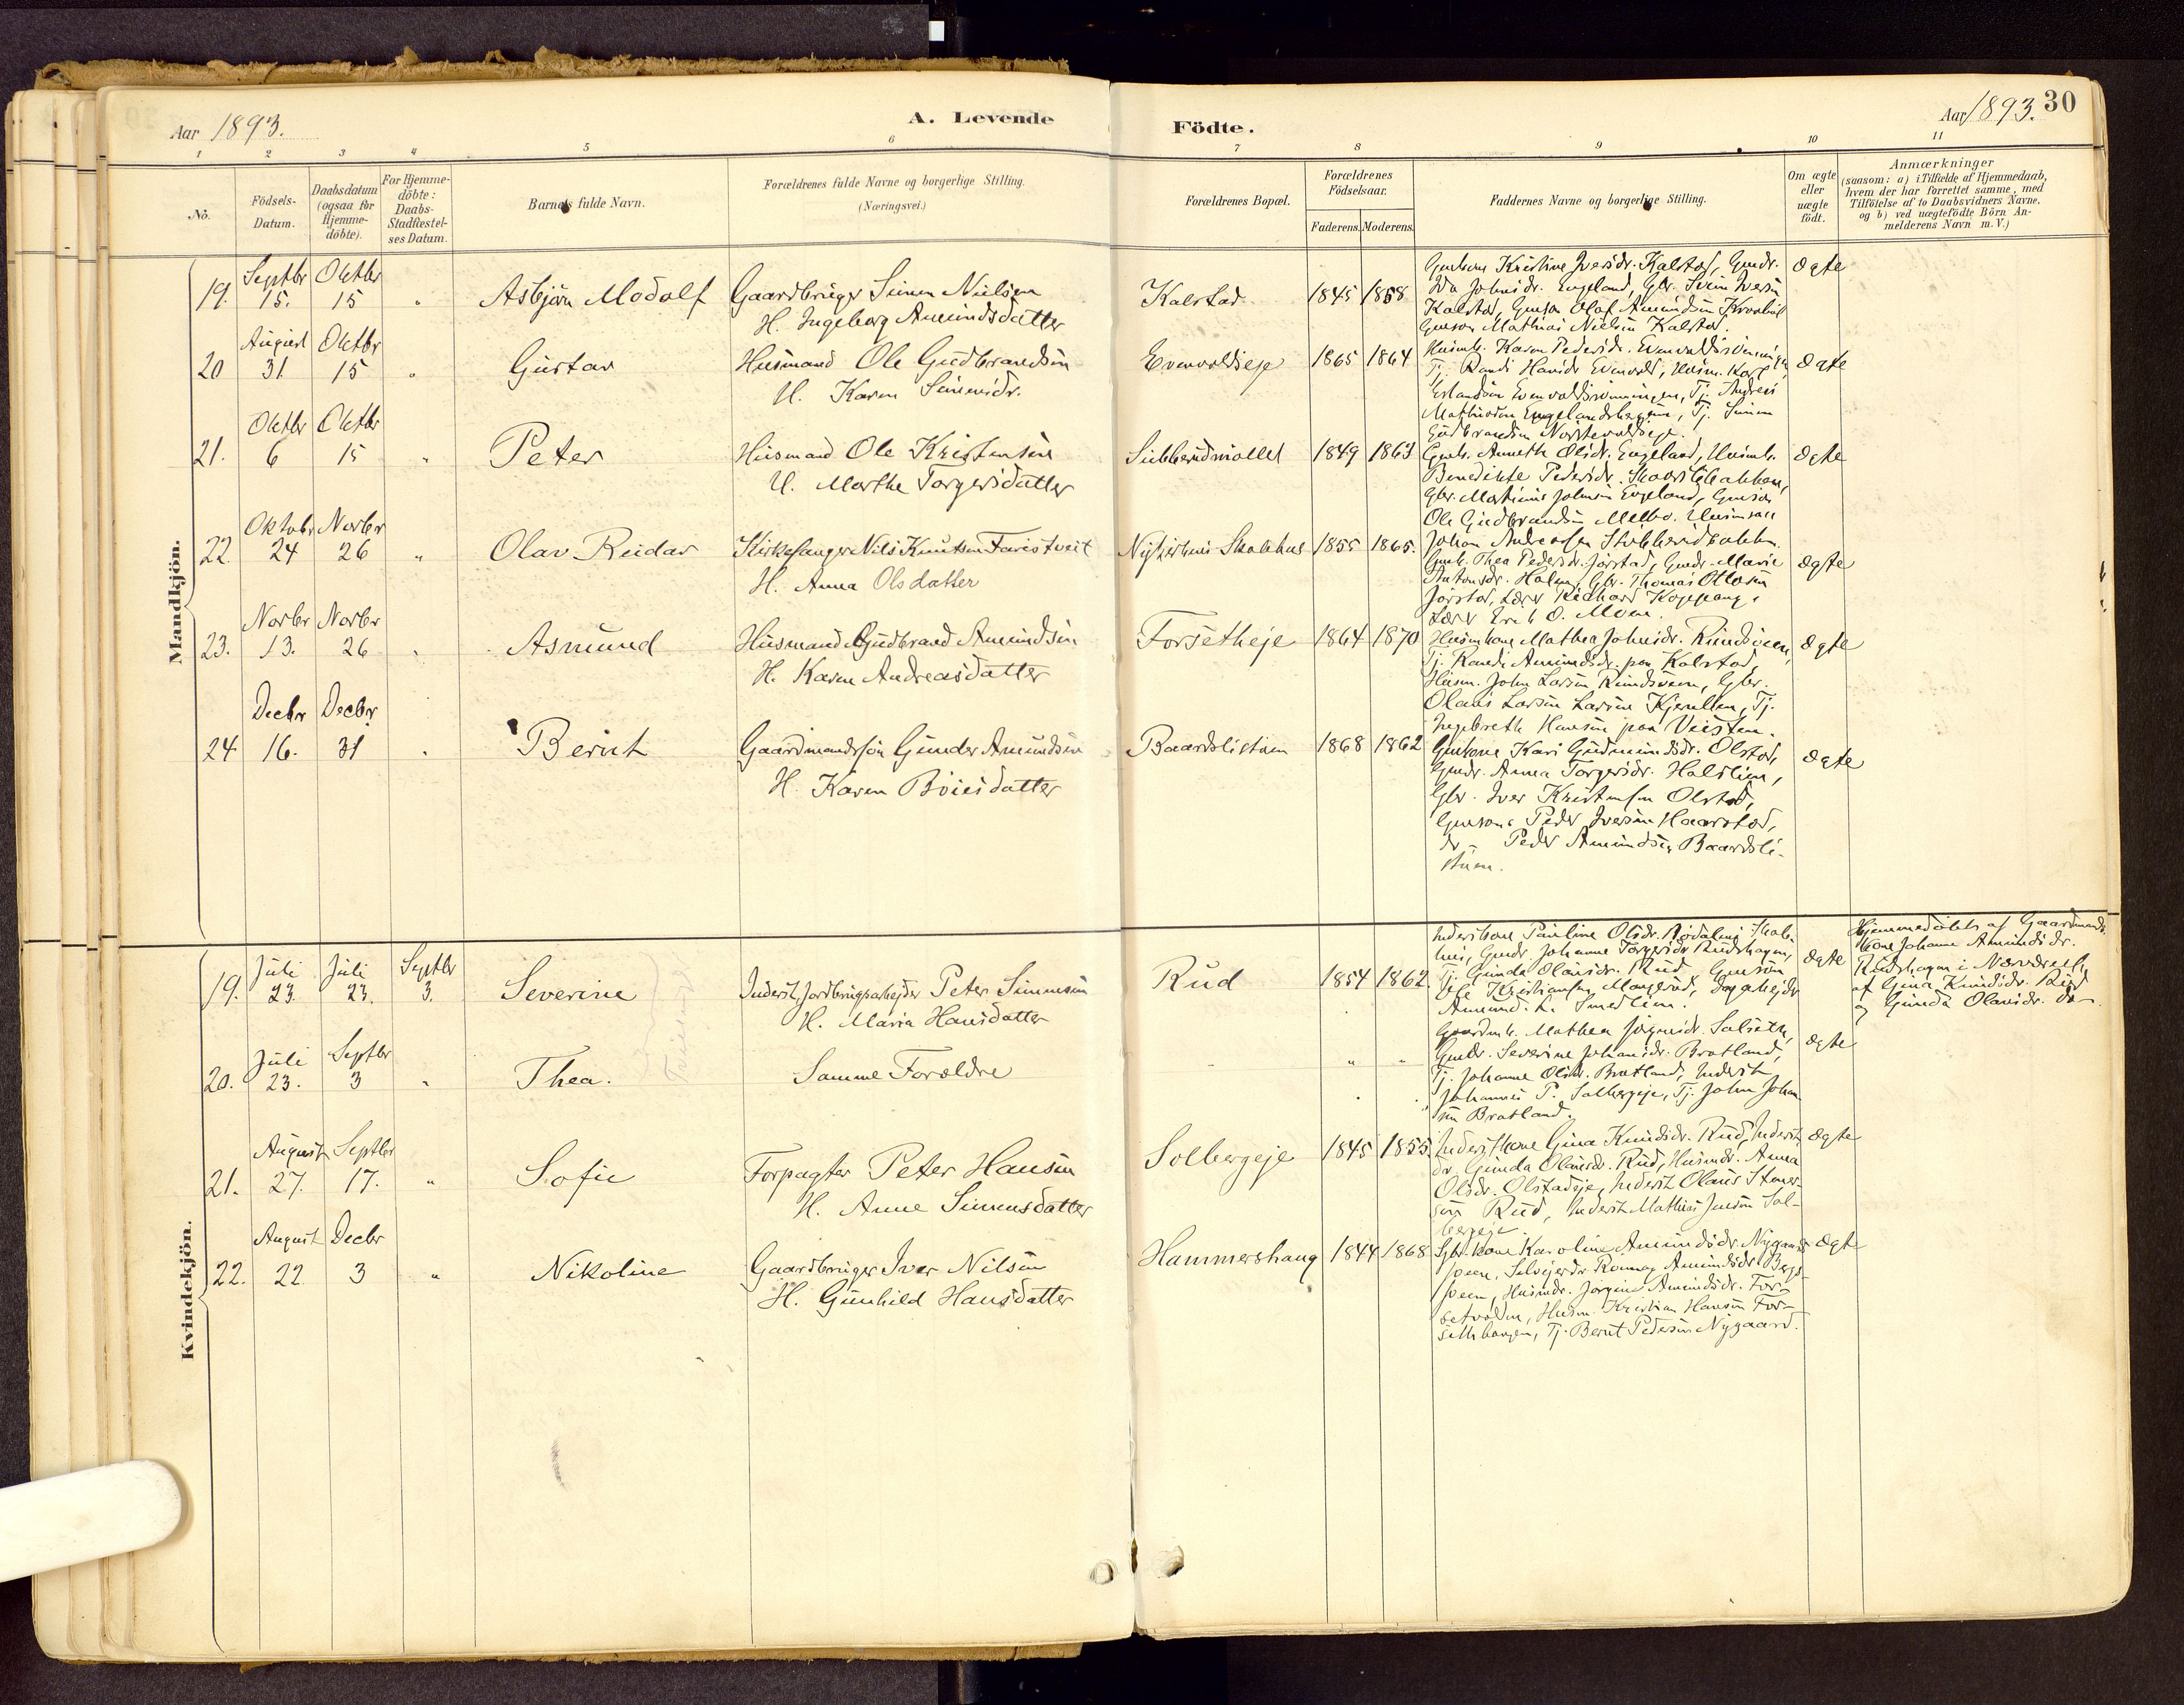 Aar 1893.
A. Levende
Födte.
Aar 1893. 30
1 2 3 4 5 6 7 8 9 10 11
No.
Födsels-
Datum.
Daabsdatum
(ogsaa for
Hjemme-
döbte).
For Hjemme-
döbte:
Daabs-
Stadfæstel-
ses Datum.
Barnets fulde Navn.
Forældrenes fulde Navne og borgerlige Stilling.
(Næringsvei.)
Forældrenes Bopæl.
Forældrenes
Födselsaar.
Faderens. Moderens.
Faddernes Navne og borgerlige Stilling.
Om ægte
eller
uægte
födt.
Anmærkninger
(saasom: a) i Tilfælde af Hjemmedaab,
hvem der har forrettet samme, med
Tilföielse af to Daabsvidners Navne,
og b) ved uægtefödte Börn An-
melderens Navn m. V.)
Mandkjön.
19. Septbr 15. Oktbr 15 "
Asbjörn Modolf
Gaardbruger Simen Nielsen
H. Ingeborg Amundsdatter
Kalstad 1845 1858
Kristine Iversdr. Kalstad, Gmdr.
Johnsdr. Engeland, Gbr. Svein Iversen
Kalstad, Gmsøn Olaf Amundsen
Gmsøn Mathias Nielsen Kalstad.
Ægte
20 August 31. Oktbr 15 "
Gustav
Husmand Ole Gudbrandsen
H. Karen Simensdr.
Evenvoldseje 1865 1864
Husmk. Karen Pedersdr.
Tj. Randi Hansdr. Evenvold, Husm. Karl
Erlandsen Evenvoldsrönningen, Tj. Andreas
Mathiesen Engelandshagen, Tj. Simen
Gudbrandsen
Ægte
21. Oktbr 6 Oktbr 15 "
Peter
Husmand Ole Kristensen
H. Marthe Torgersdatter
1849 1863
Gmk. Anneth Olsdr. Engeland, Husmk.
Benedikte Pedersdr.
Gbr. Martinus Johnsen Engeland, Gmsøn
Ole Gudbrandsen Melbo. Husmsøn
Johan Andreassen
Ægte
22. Oktober 24 Novbr 26 "
Olav Reidar
Kirkesanger Nils Knutsen Faristveit
H. Anna Olsdatter
Nykirkens Skolehus 1855 1865.
Gmk. Thea Pedersdr. Jørstad, Gmdr. Marie
Antonsdr. Holen, Gbr. Thomas Ottosen
Jørstad, Lærer Richard Koppang,
Lærer Erik O. Moen.
Ægte
23. Novbr 13. Novbr 26 "
Asmund
Husmand Gudbrand Amundsen
H. Karen Andreasdatter
Forsetheje 1864 1870
Husmkone Mathea Johnsdr. Rundsveen,
Tj. Randi Amundsdr. paa Kalstad,
Husm. John Larsen Rundsveen, Gbr.
Olaus Larsen Larsen Kjerullen, Tj.
Ingebreth Hansen paa Veisten.
Ægte
24. Decbr 16. Decbr 31 "
Bernt
Gaardmandssøn Gunder Amundsen
H. Karen Böiesdatter
Baardslistuen 1868 1862
Gmkone Kari Gudmundsdr. Olstad,
Gmdr. Anna Torgersdr. Holslien,
Gbr. Iver Kristensen Olstad,
Gmsøn Peder Iversen Haarstad,
do - Peder Amundsen Baardsli-
stuen.
Ægte
Kvindekjön.
19. Juli 23. Juli 23. Septbr 3.
Severine
Inderst, Jordbrugsarbejder Peter Simensen
H. Maria Hansdatter
Rud 1854 1862.
Inderstkone Pauline Olsdr. Rödalens Skole-
hus, Gmdr. Johanne Torgersdr. Rudshagen,
Tj. Gunda Olausdr. Rud, Gmsøn
Ole Kristiansen Mangerud, Dagarbejder
Amund. L. Smedlien.
Ægte
Hjemmedöbt af Gaardmands-
kone Johanne Amundsdr.
Rudshagen i Nærværelse
af Gina Knudsdr. Rud
og Gunda Olausdr. do.
20. Juli 23. Septbr 3 "
Thea.
Tvillinger
Samme Forældre
" "
Gaardmk. Mathea Jögensdr. Solseth,
Gmdr. Severine Johansdr. Bratland,
Tj. Johanne Olsdr. Bratland, Inderst
Johannes P. Solbergeje, Tj. John Johan-
sen Bratland.
Ægte
21. August 27. Septbr 17. "
Sofie
Forpagter Peter Hansen
H. Anne Simensdatter
Solbergeje 1845 1855.
Inderstkone Gina Knudsdr. Rud, Inderst
dr. Gunda Olausdr. Rud, Husmdr. Anna
Olsdr. Olstadeje, Inderst Olaus Stener-
sen Rud, Inderst Mathias Jensen Sol-
bergeje.
Ægte
22. August 22. Decbr 3 "
Nikoline
Gaardbruger Iver Nilsen
H. Gunhild Hansdatter
Hammershaug 1844 1868
Gbr.kone Karoline Amundsdr. Nygaards-
veen, Selvejerdr. Ronnog Amundsdr. Bergs-
veen, Husmdr. Jörgine Amundsdr. For-
setvolden, Husm. Kristian Hansen For-
sethhaugen, Tj. Bernt Pedersen Nygaard.
Ægte